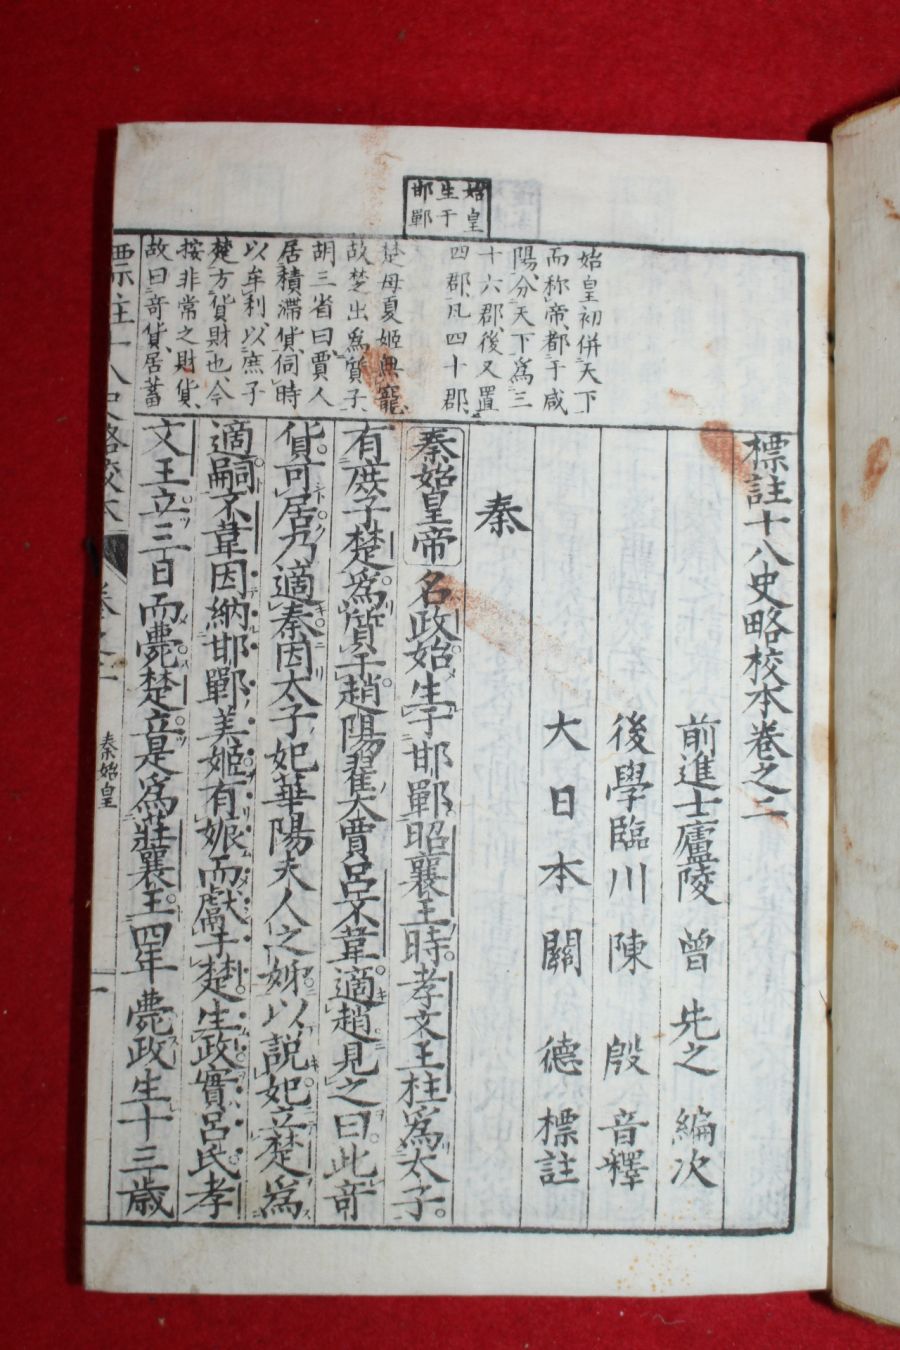 始皇
生于
邯鄲
始皇初併天下
而称帝都于咸
陽分天下爲三
十六郡後又置
四郡凡四十郡
楚母夏姬無寵
故楚出爲質子
胡三省曰賈人
居積滯貨伺時
以牟利以庶子
楚方貨財也今
按非常之財貨
故曰奇貨居蓄
標註十八史略校本卷之二
前進士廬陵 曾 先之 編次
後學臨川 陳 殷 音釋
大日本 關 德 標註
秦
秦始皇帝名政始生于邯鄲昭襄王時孝文王柱爲太子
有庶子楚爲質于趙陽翟大賈呂不韋適趙見之曰此奇
貨可居乃適秦因太子妃華陽夫人之姊以説妃立楚爲
適嗣不韋因納邯鄲美姬有娠而獻于楚生政實呂氏孝
文王立三日而薨楚立是爲莊襄王四年薨政生十三歲
標註十八史略校本
秦始皇